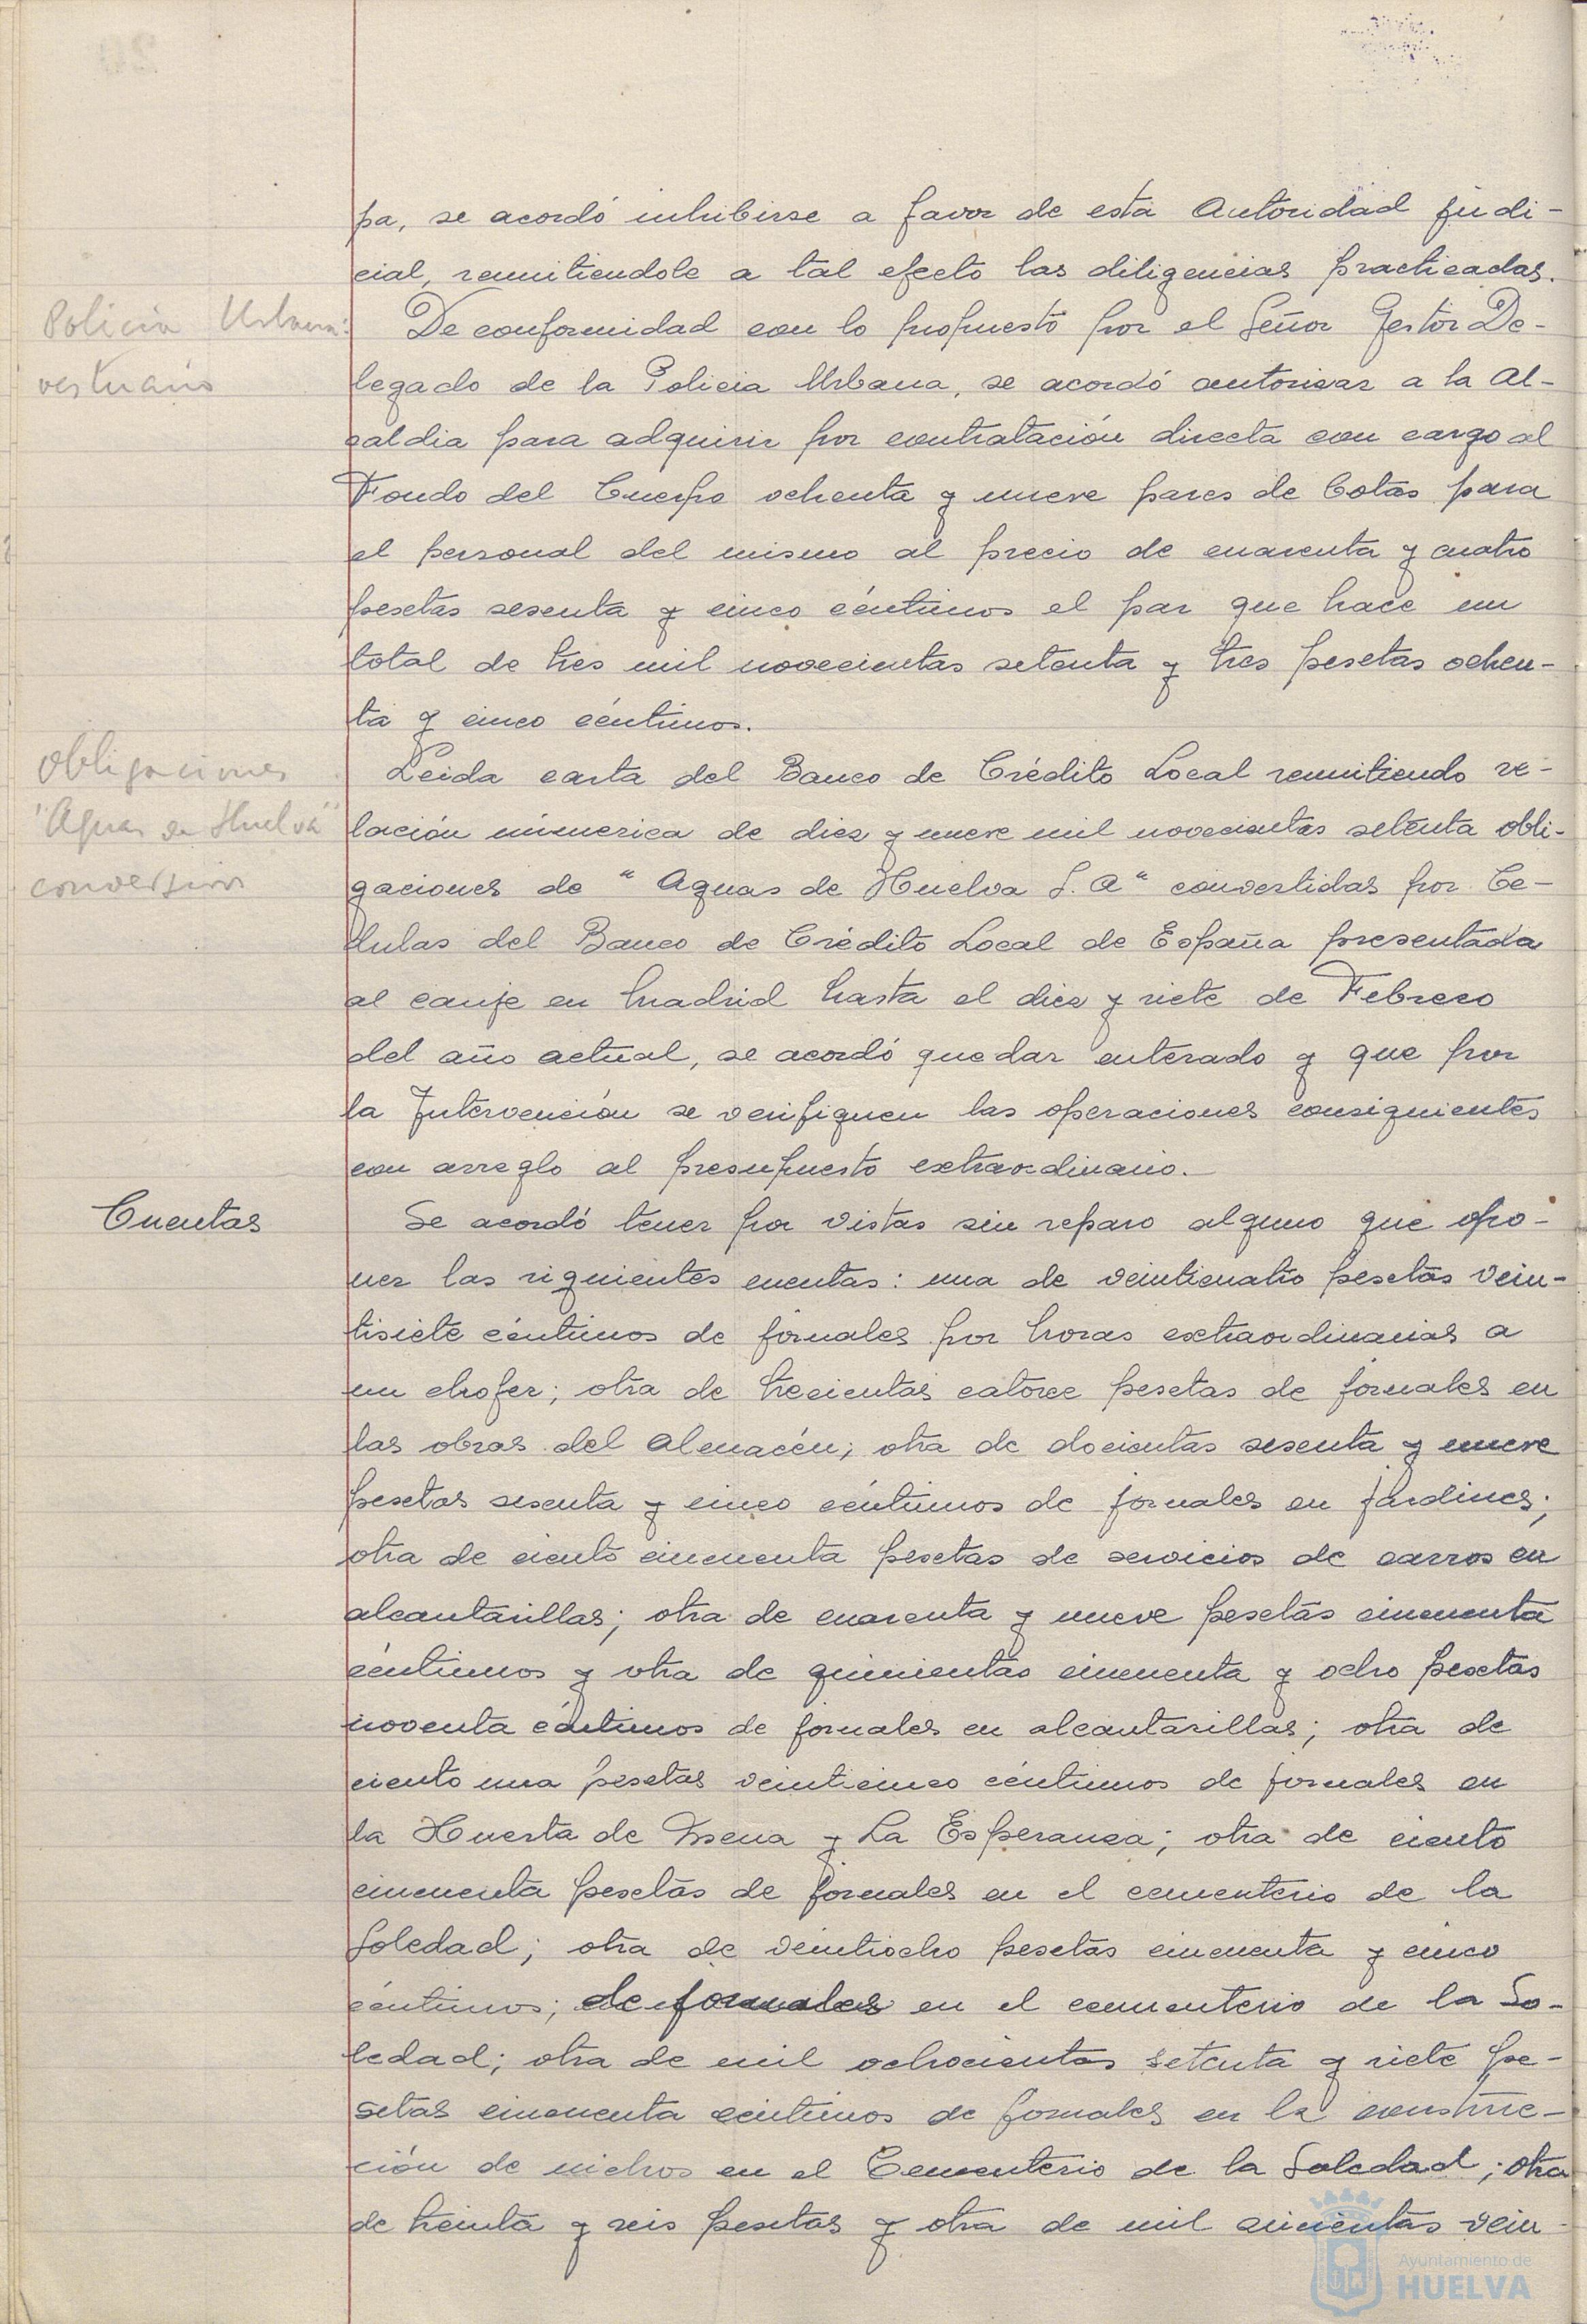 pa, se acordó inhibirse a favor de esta Autoridad judi-
cial, remitiendole a tal efecto las diligencias practicadas.
Policia Urbana:
vestuario
De conformidad con lo propuesto por el Señor Gestor De-
legado de la Policia Urbana, se acordó autorizar a la Al-
caldia para adquirir por contratación directa con cargo al
Fondo del Cuerpo ochenta y nueve pares de botas para
el personal del mismo al precio de cuarenta y cuatro
pesetas sesenta y cinco céntimos el par que hace un
total de tres mil novecientas setenta y tres pesetas ochen-
ta y cinco céntimos.
Obligaciones
"Aguas de Huelva"
conversion
Leida carta del Banco de Crédito Local remitiendo re-
lación númerica de diez y nueve mil novecientas setenta obli-
gaciones de "Aguas de Huelva S.A" convertidas por Ce-
dulas del Banco de Crédito Local de España presentada
al canje en Madrid hasta el diez y siete de Febrero
del año actual, se acordó quedar enterado y que por
la Intervención se verifiquen las operaciones consiguientes
con arreglo al presupuesto extraordinario.
Cuentas
Se acordó tener por vistas sin reparo alguno que opo-
ner las siguientes cuentas: una de veinticuatro pesetas vein-
tisiete céntimos de jornales por horas extraordinarias a
un chofer; otra de trecientas catorce pesetas de jornales en
las obras del Almacén; otra de docientas sesenta y nueve
pesetas sesenta y cinco céntimos de jornales en jardines;
otra de ciento cincuenta pesetas de servicios de carros en
alcantarillas; otra de cuarenta y nueve pesetas cincuenta
céntimos y otra de quinientas cincuenta y ocho pesetas
noventa céntimos de jornales en alcantarillas; otra de
ciento una pesetas veinticinco céntimos de jornales en
la Huerta de Mena y La Esperanza; otra de ciento
cincuenta pesetas de jornales en el cementerio de la
Soledad; otra de veintiocho pesetas cincuenta y cinco
céntimos; de jornales en el cementerio de la So-
ledad; otra de mil ochocientas setenta y siete pe-
setas cincuenta céntimos de jornales en la construc-
ción de nichos en el Cementerio de la Soledad; otra
de treinta y seis pesetas y otra de mil quinientas vein-
Ayuntamiento de
HUELVA